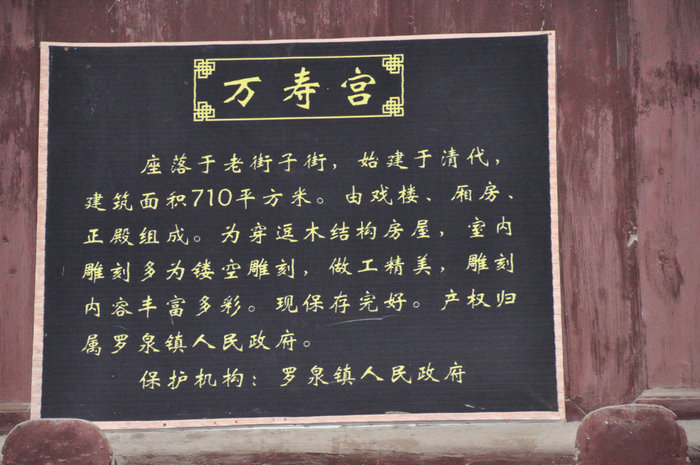 万寿宫
座落于老街子街，始建于清代，
建筑面积710平方米。由戏楼、厢房、
正殿组成。为穿逗木结构房屋，室内
雕刻多为镂空雕刻，做工精美，雕刻
内容丰富多彩。现保存完好。产权归
属罗泉镇人民政府。
保护机构：罗泉镇人民政府